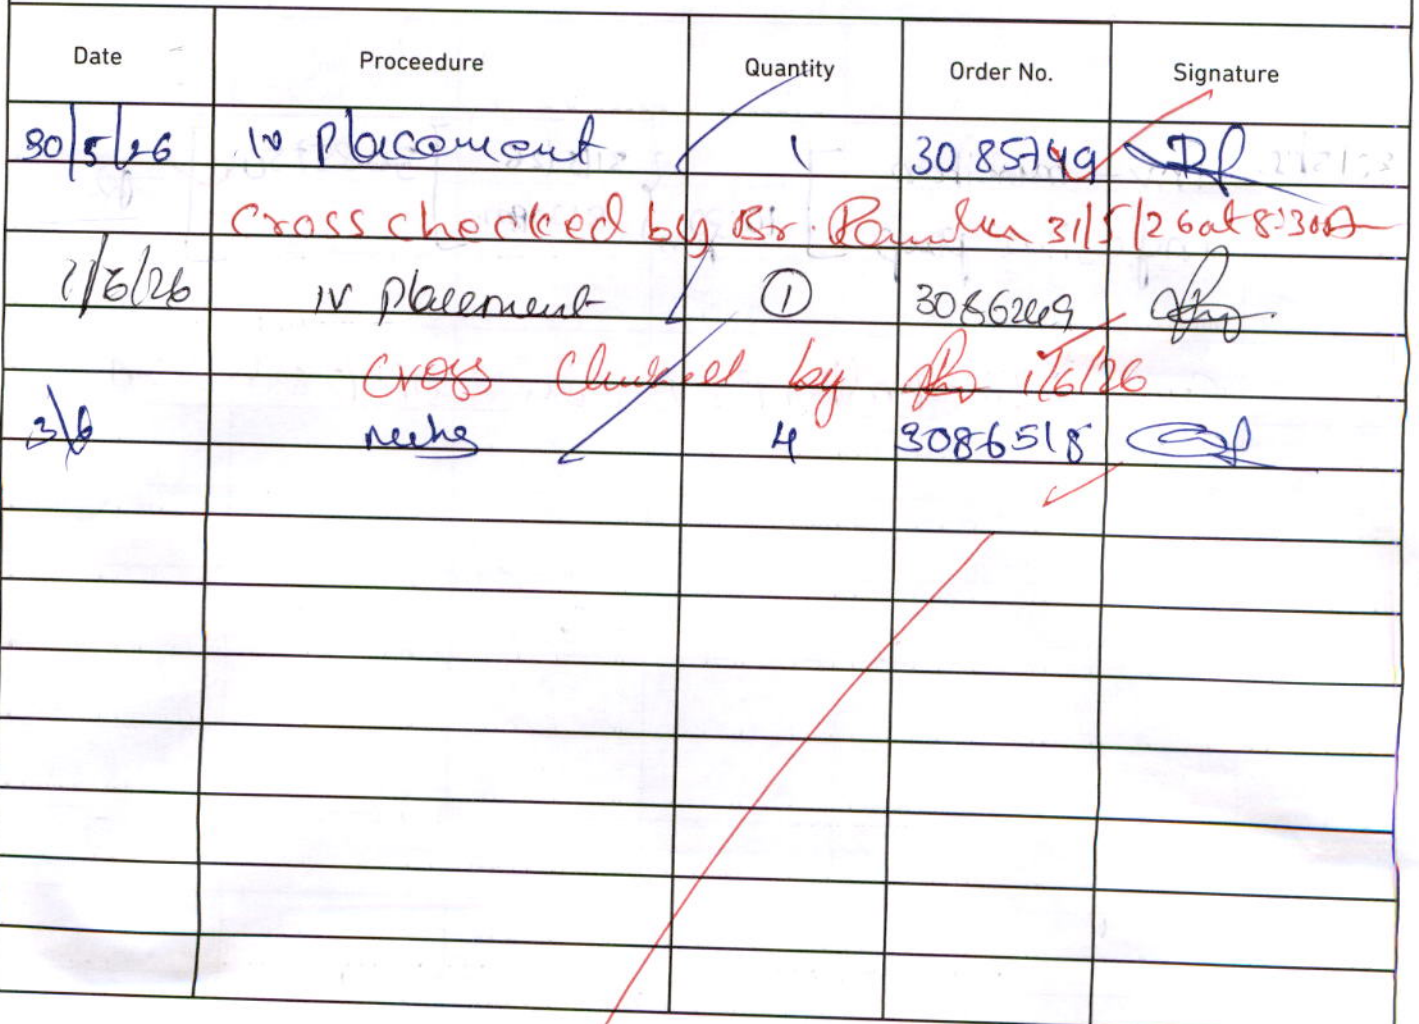 Date Proceedure Quantity Order No. Signature
30/5/26 IV Placement 1 3085749
Cross checked by Br. 31/5/26 at 8:30
1/6/26 IV Placement 1 3086249
Cross checked by 1/6/26
3/6 4 3086518